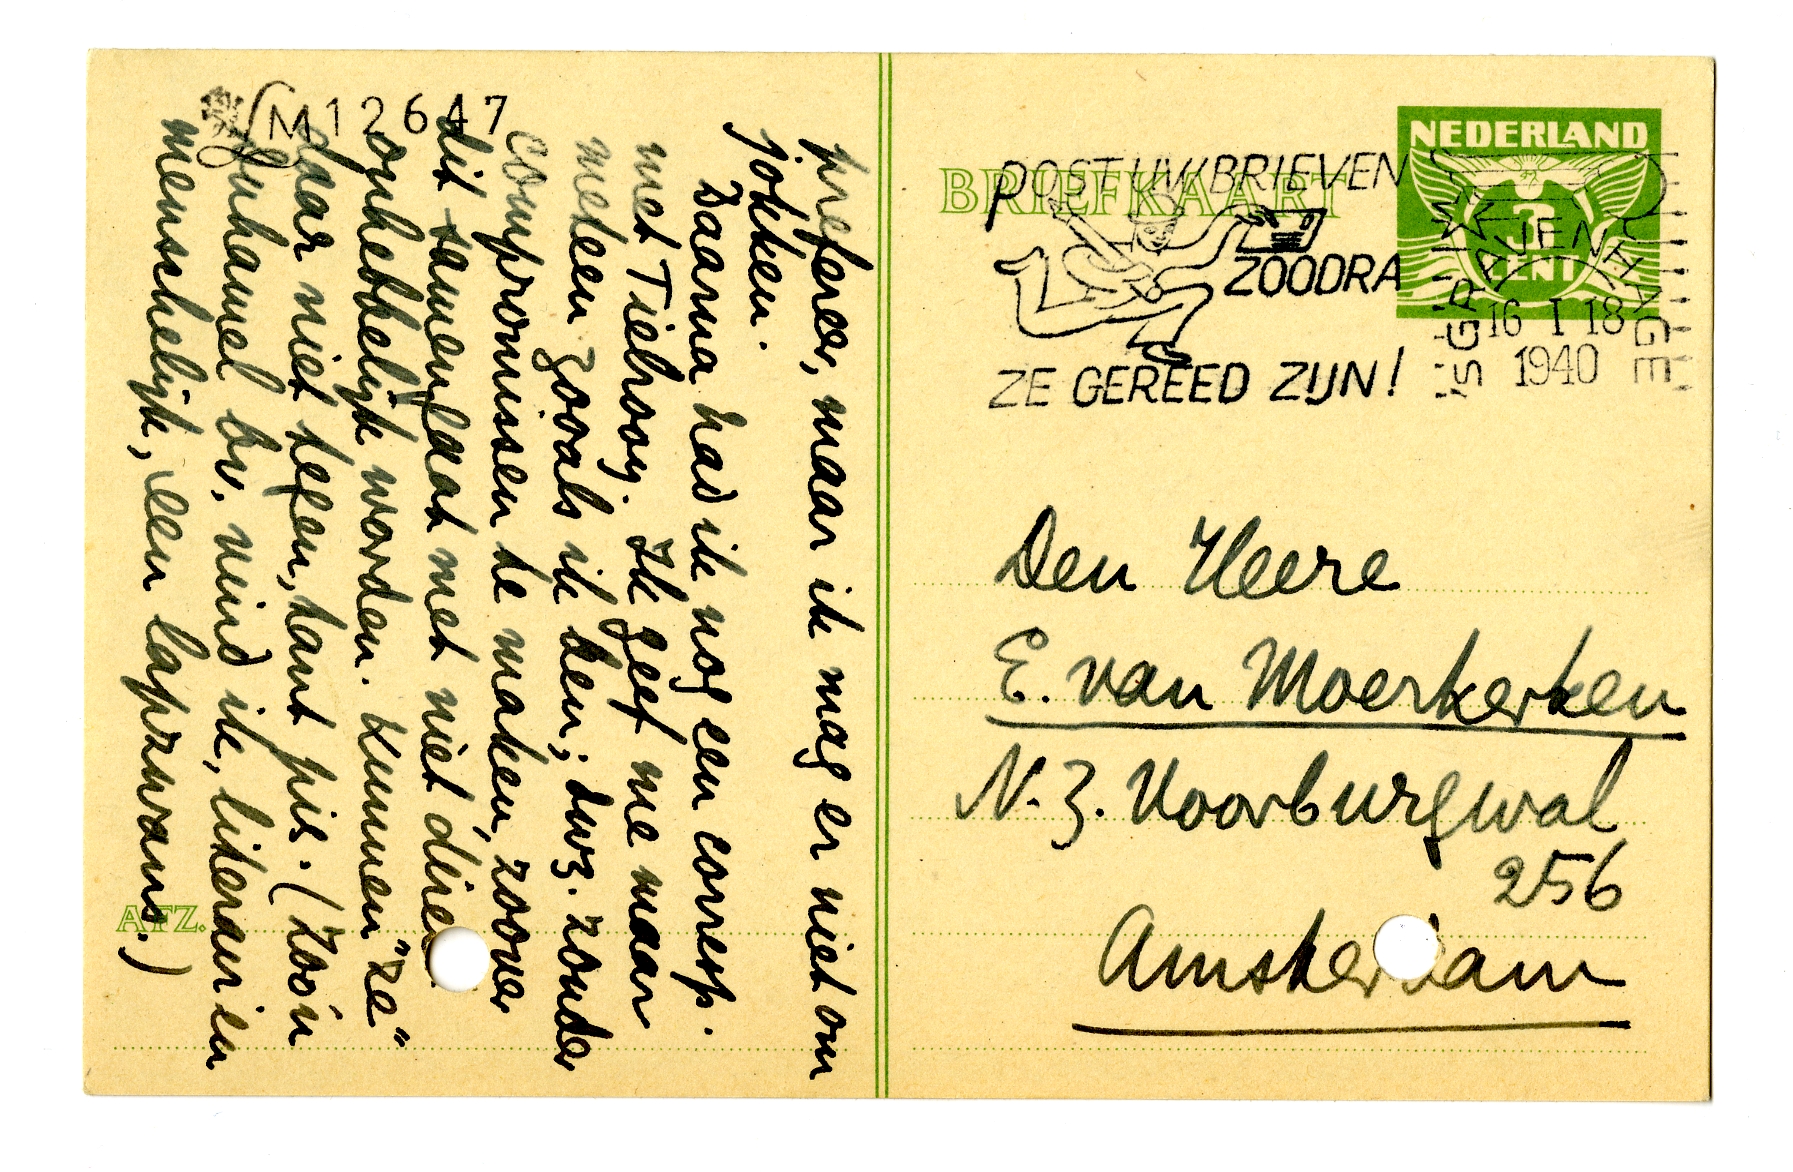 M12647
prefereer, maar ik mag er niet om
jokken.
Daarna had ik nog een corresp.
met Tielrooy. Ik geef me maar
meteen zooals ik ben; dwz. zonder
compromissen te maken, zoover
dit samengaat met niet direct
onhebbelijk worden. Kunnen "ze"
daar niet tegen, tant pis. (Zoo'n
Duhamel bv. vind ik, literair en
menschelijk, een lapzwans.)
AFZ.
BRIEFKAART
NEDERLAND
3
CENT
POST UW BRIEVEN
ZOODRA
ZE GEREED ZIJN!
'SGRAVENHAGE
16 I 18
1940
Den Heere
E. van Moerkerken
N. Z. Voorburgwal
256
Amsterdam